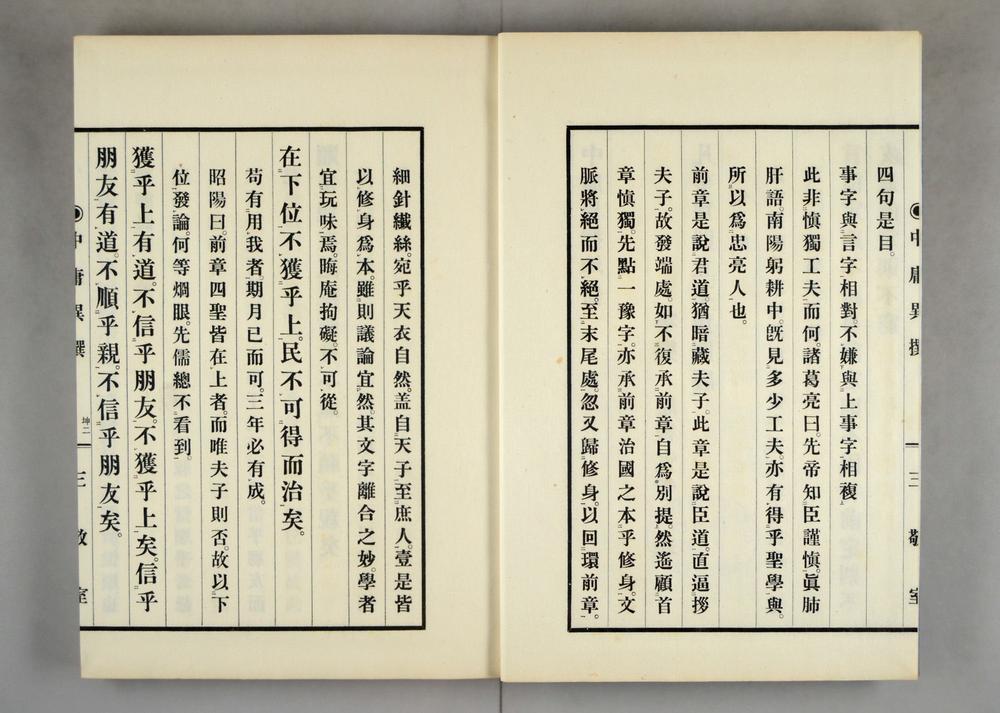 四句是目。
事字與言字相對。不嫌與上事字相複。
此非愼獨工夫而何。諸葛亮曰。先帝知臣謹愼。眞肺
肝語。南陽躬耕中。旣見多少工夫。亦有得乎聖學與。
所以爲忠亮人也。
前章是說君道。猶暗藏夫子。此章是說臣道。直逼拶
夫子。故發端處。如不復承前章。自爲別提。然遙顧首
章愼獨。先點一豫字。亦承前章治國之本乎修身。文
脈將絕而不絕。至末尾處。忽又歸修身。以回環前章。
細針纎絲。宛乎天衣自然。盖自天子至庶人。壹是皆
以修身爲本。雖則議論宜然。其文字離合之妙。學者
宜玩味焉。晦庵拘礙。不可從。
在下位不獲乎上。民不可得而治矣。
苟有用我者。期月已而可。三年必有成。
昭陽曰。前章四聖皆在上者。而唯夫子則否。故以下
位發論。何等爛眼。先儒總不看到。
獲乎上有道。不信乎朋友。不獲乎上矣。信乎
朋友有道。不順乎親。不信乎朋友矣。
中庸異撰
三
敬室
中庸異撰
坤二
三
敬室